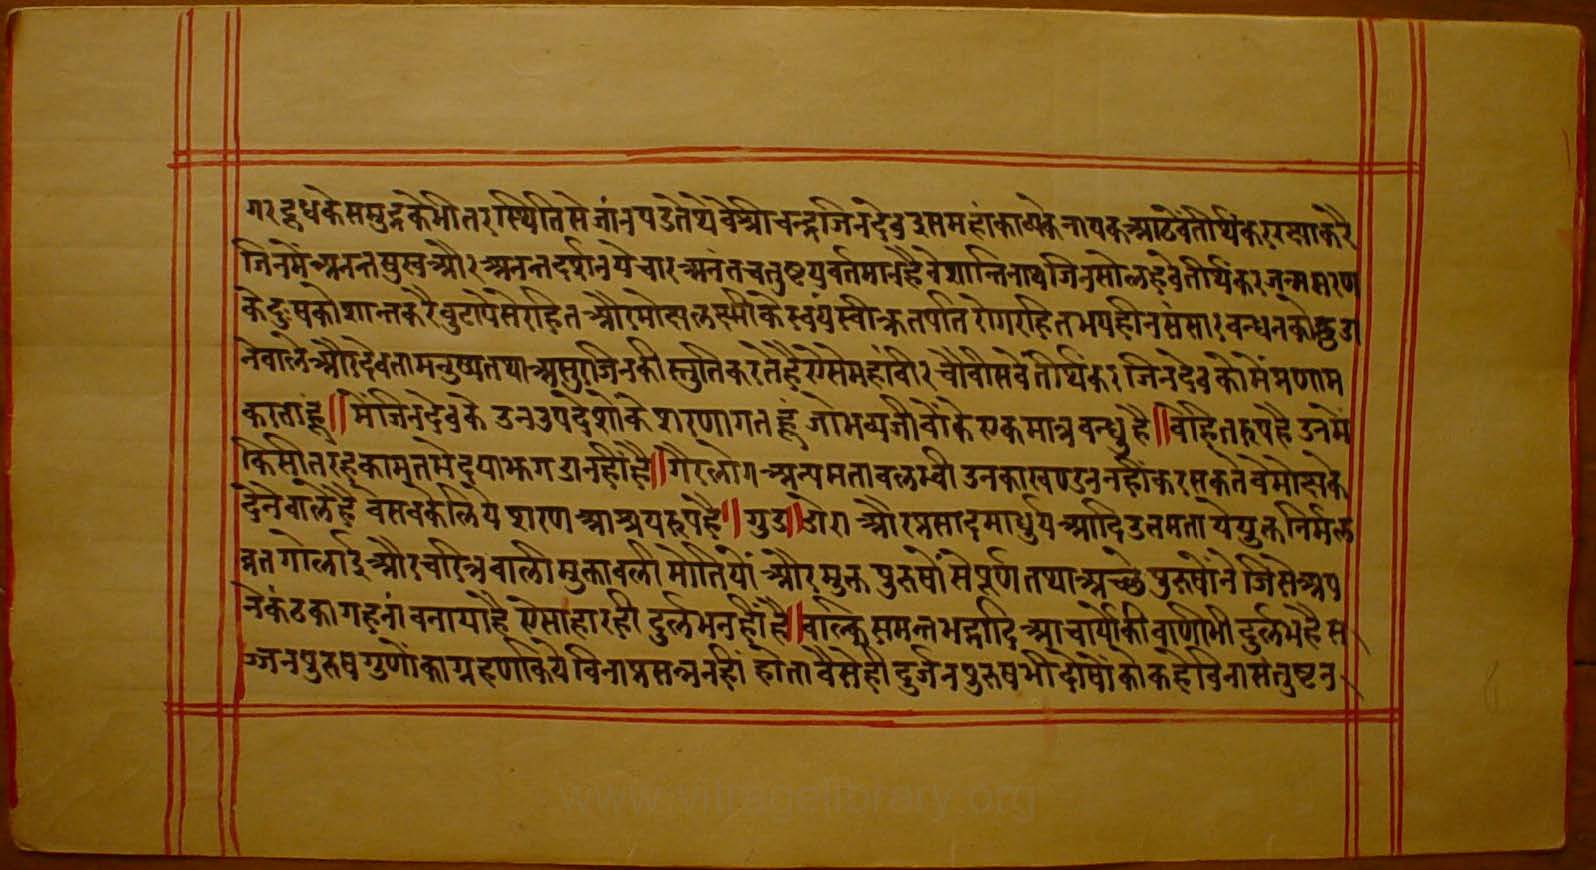 गर दूध के समुद्र के भीतर स्थिति से जांन पडते थे वे श्री चन्द्र जिनदेव इस महांकाव्य के नायक आठवें तीर्थिंकर रक्षा करै
जिनमें अनन्त सुख और अनन्त दर्शन ये चार अनंत चतुष्टय वर्तमान है वे शान्तिनाथ जिन सोलहवे तीर्थिकर जन्म मरण
के दुःष को शान्त करै वुढापे से रहित और मोक्षलक्ष्मी के स्वंय स्वीक्रत पति रोग रहित भयहीन संसार वन्धन को छुडा
नेवाले और देवता मनुष्य तथा असुर जिनकी स्तुति करते है एेसे महांवीर चौवीसवें तीर्थिंकर जिनदेव को में प्रणाम
करता हूं॥ में जिनदेव के उन उपदेशो के शरणागत हूं जो भव्य जीवों के एक मात्र वन्धु है॥ वोहित रुप है उनमें
किसी तरह का मृतमेद या झगडा नहीं है॥ गैर लोग अन्य मतावलम्वी उनका खण्डन नहीं कर सकते वे मोक्ष के
देनेवाले है वे सवके लिये शरण आश्रय रुप है॥ गुड॥ डोरा और प्रसाद माधुर्य आदि उत्तमता ये युक्त निर्मल
व्रत गोलाई और चरित्र वाली मुक्तावली मोतियों और मुक्त पुरुषों से पूर्ण तथा अच्छे पुरुषों ने जिसे अप
ने कंठ का गहनां वनाया है एेसा हार ही दुर्लभ नहीं है॥ वल्कि समन्तभद्रादि आचार्यो की वाणी भी दुर्लभ है स
ज्जन पुरुष गुणों का ग्रहण किये विना प्रसन्न नहीं होता वैसे ही दुर्जन पुरुष भी दोषों को कहे विना संतुष्ट न
www.vitragelibrary.org